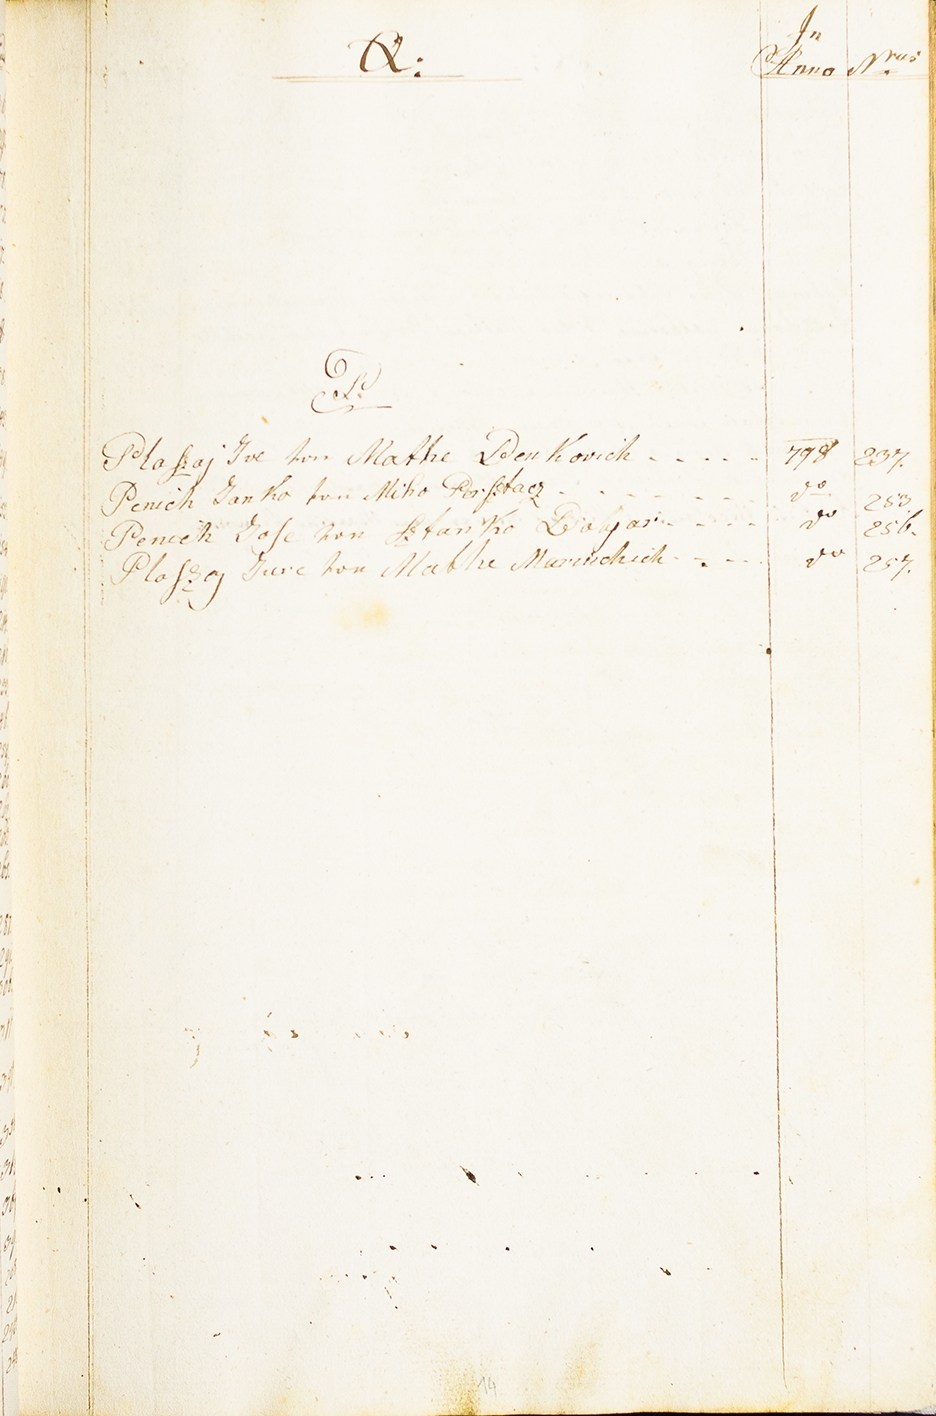 Q: In
Anno Nrus
P:
Plaszaj Ive von Mathe Denkovich - - - - - 798 237.
Penich Janko von Miko Persztacz - - - - - - do 253.
Penich Jose von Sztanko - - - - do 256.
Plaszaj Jure von Mathe Marinchich - - - - do 257.
14